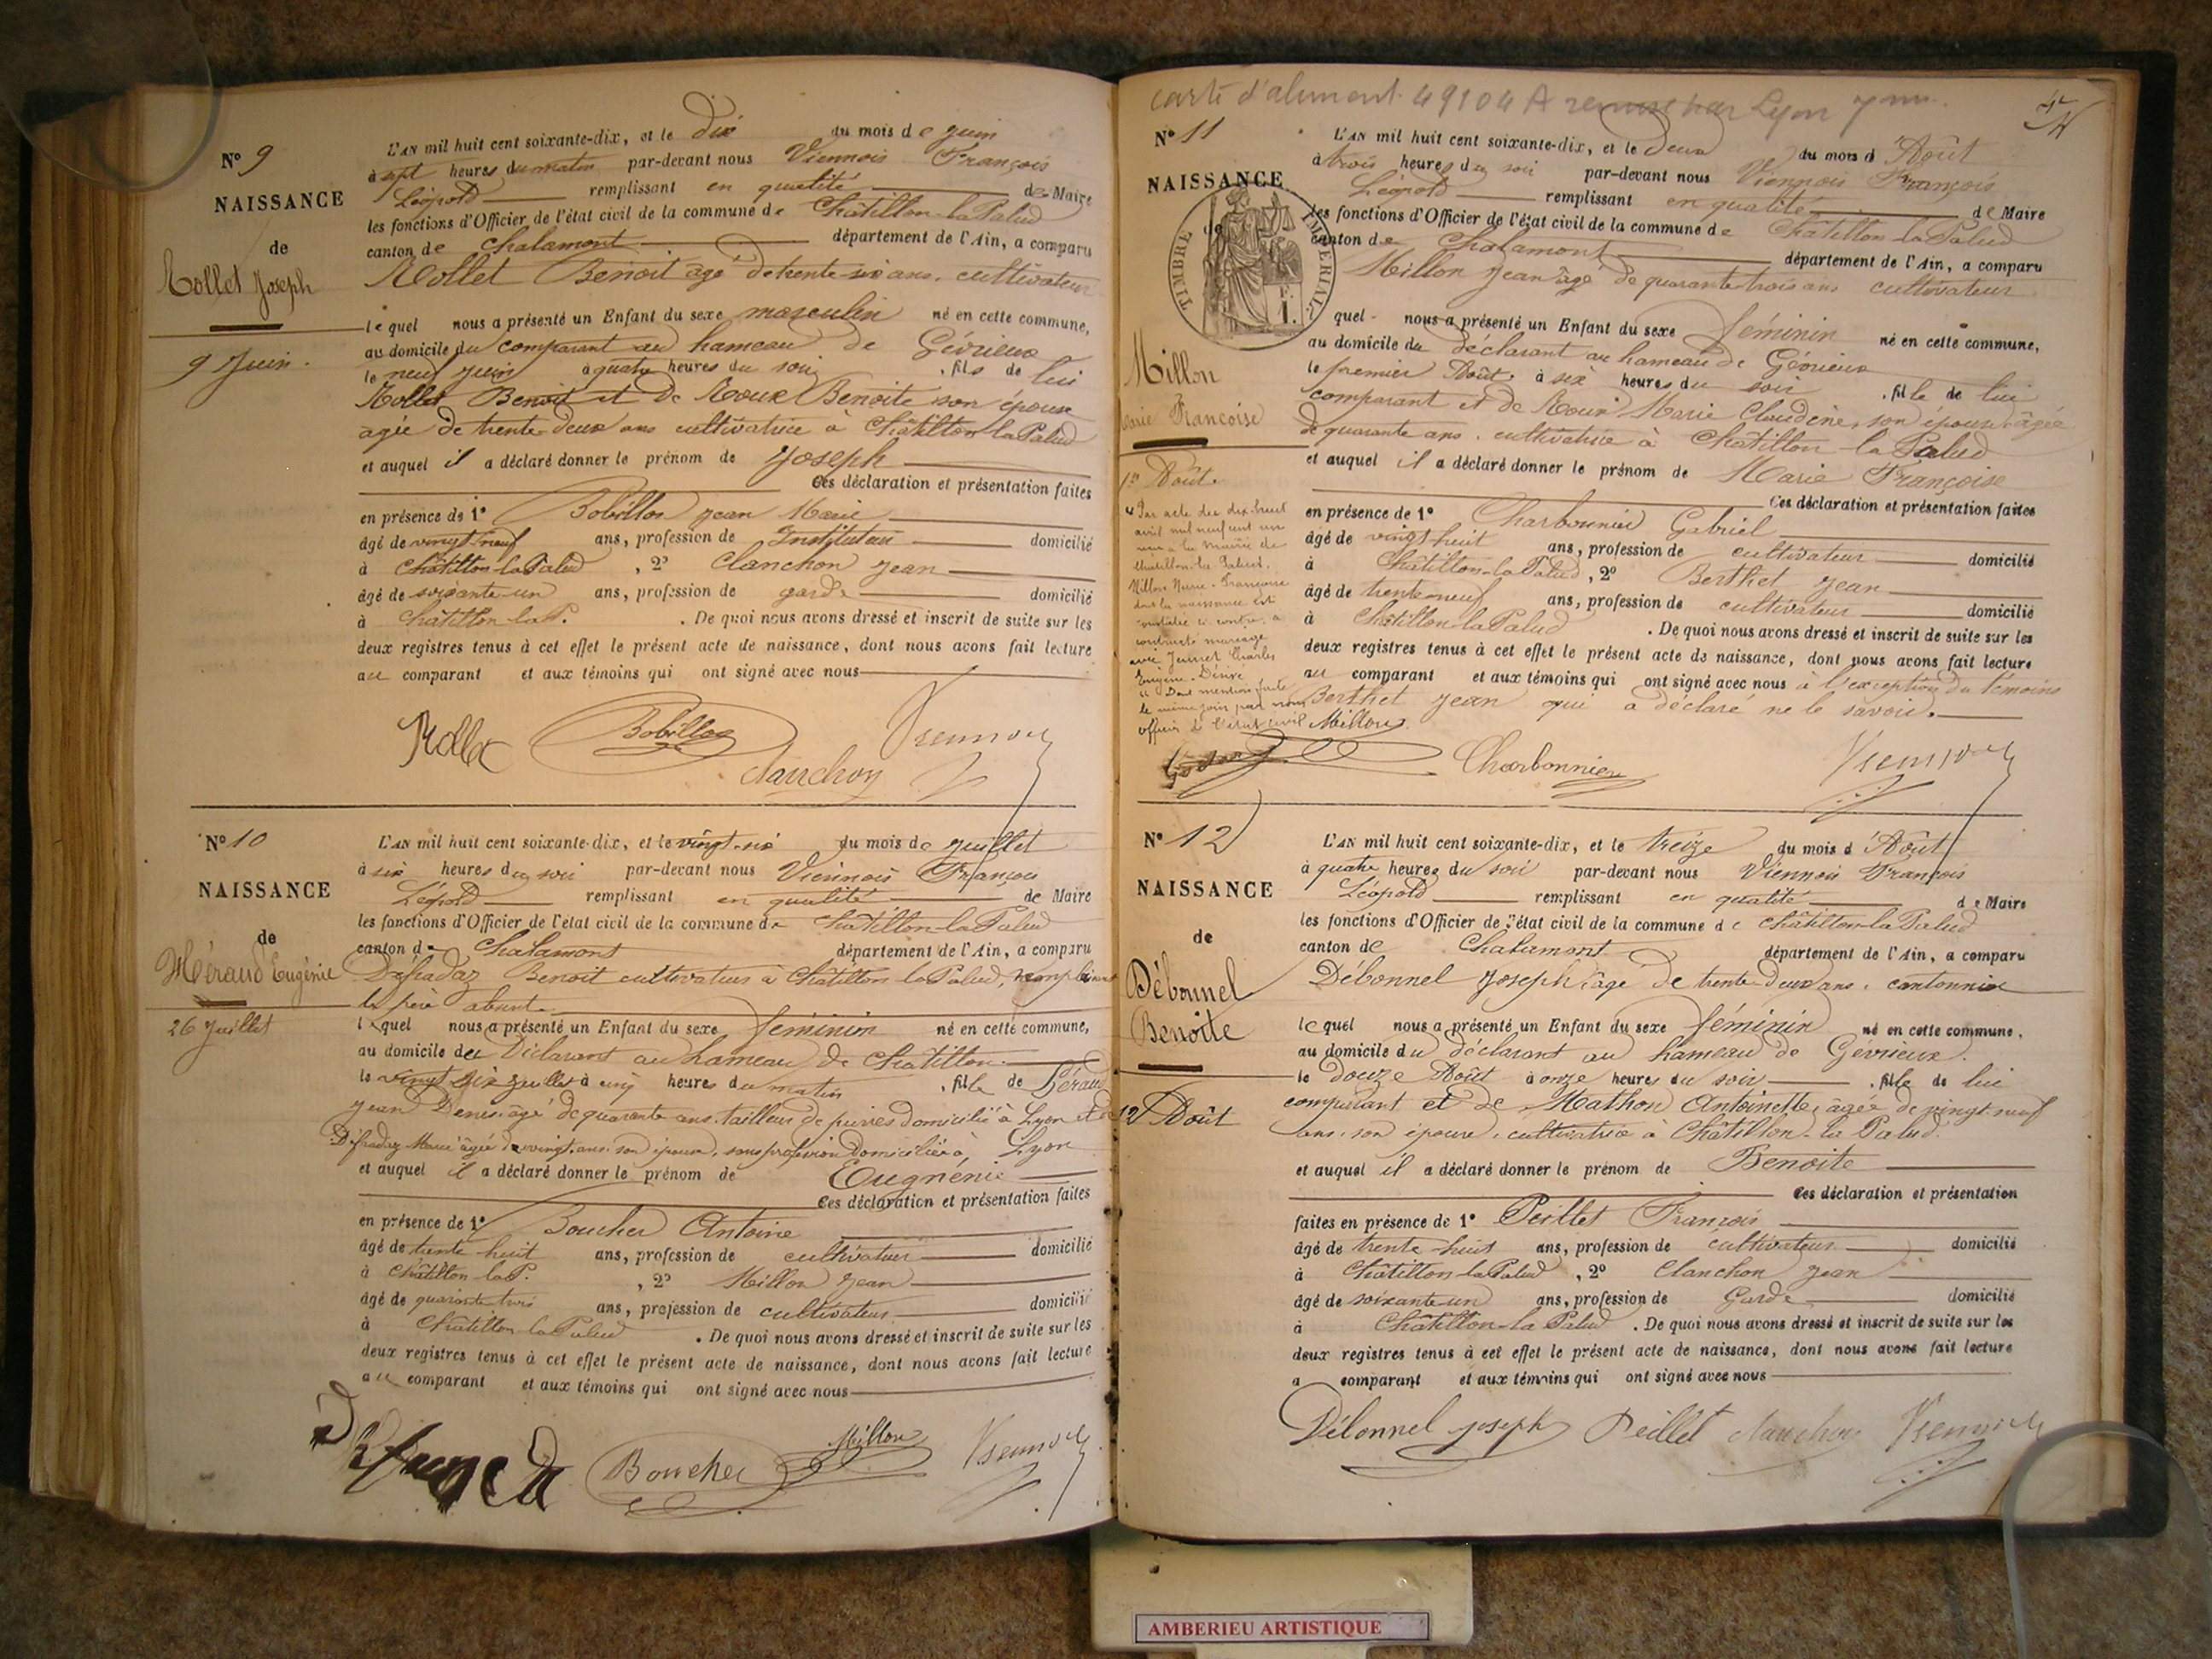 N° 9
NAISSANCE
de
Rollet Joseph
9 Juin.
L'AN mil huit cent soixante-dix, et le dix du mois de Juin
à sept heures du matin par-devant nous Viennois François
Léopold remplissant en qualité de Maire
les fonctions d'Officier de l'état civil de la commune de Châtillon-la-Palud
canton de Chalamont département de l'Ain, a comparu
Rollet Benoit âgé de trente six ans, cultivateur
lequel nous a présenté un Enfant du sexe masculin né en cette commune,
au domicile du comparant au hameau de Gévrieux
le neuf juin à quatre heures du soir, fils de lui
Rollet Benoit et de Roux Benoite son épouse
agée de trente-deux ans cultivatrice à Châtillon la Palud
et auquel il a déclaré donner le prénom de Joseph
Ces déclaration et présentation faites
en présence de 1° Bobillon Jean Marie
âgé de vingt neuf ans, profession de Instituteur domicilié
à Châtillon-la-Palud, 2° Clanchon Jean
âgé de soixante-un ans, profession de garde domicilié
à Châtillon-la-P. . De quoi nous avons dressé et inscrit de suite sur les
deux registres tenus à cet effet le présent acte de naissance, dont nous avons fait lecture
au comparant et aux témoins qui ont signé avec nous
Rollet Bobillon Clanchon Viennois
N° 10
NAISSANCE
de
Méraud Eugénie
26 Juillet
L'AN mil huit cent soixante-dix, et le vingt-six du mois de Juillet
à six heures du soir par-devant nous Viennois François
Léopold remplissant en qualité de Maire
les fonctions d'Officier de l'état civil de la commune de Châtillon-la-Palud
canton de Chalamont département de l'Ain, a comparu
Benoit cultivateur à Châtillon la Palud, remplaçant
le père absent
lequel nous a présenté un Enfant du sexe féminin né en cette commune,
au domicile du Déclarant au hameau de Châtillon
le vingt six juillet à cinq heures du matin, fille de
Jean Denis âgé de quarante ans, tailleur de pierres domicilié à Lyon et de
Marie âgée de vingt ans son épouse, sans profession domiciliée à Lyon
et auquel il a déclaré donner le prénom de Eugnénie
Ces déclaration et présentation faites
en présence de 1° Boucher Antoine
âgé de trente-huit ans, profession de cultivateur domicilié
à Châtillon-la-P. , 2° Millon Jean
âgé de quarante-trois ans, profession de cultivateur domicilié
à Châtillon la Palud . De quoi nous avons dressé et inscrit de suite sur les
deux registres tenus à cet effet le présent acte de naissance, dont nous avons fait lecture
au comparant et aux témoins qui ont signé avec nous
Boucher Millon Viennois
carte d'aliment 49104 A remise par Lyon 7
N° 11
NAISSANCE
de
TIMBRE IMPERIAL
1 F.
Millon
Marie Francoise
1er Août.
Par acte du dix-huit
avril mil neuf cent
à la mairie de
Châtillon-la-Palud,
Millon Marie-Françoise
dont la naissance est
constatée ci-contre a
contracté mariage
avec Jannet Charles
Eugène Désiré
Dont mention faite
le même jour par nous
officier de l'état civil
L'AN mil huit cent soixante-dix, et le Deux du mois d'Août
à trois heures du soir par-devant nous Viennois François
Léopold remplissant en qualité de Maire
les fonctions d'Officier de l'état civil de la commune de Châtillon-la-Palud
canton de Chalamont département de l'Ain, a comparu
Millon Jean âgé de quarante-trois ans cultivateur
quel nous a présenté un Enfant du sexe féminin né en cette commune,
au domicile du déclarant au hameau de Gévrieux
le premier Août à six heures du soir, fille de lui
comparant et de Roux Marie Claudine, son épouse âgée
de quarante ans, cultivatrice à Châtillon la Palud
et auquel il a déclaré donner le prénom de Marie Françoise
Ces déclaration et présentation faites
en présence de 1° Charbonnier Gabriel
âgé de vingt huit ans, profession de cultivateur domicilié
à Châtillon-la-Palud, 2° Berthet Jean
âgé de trente-neuf ans, profession de cultivateur domicilié
à Châtillon-la-Palud . De quoi nous avons dressé et inscrit de suite sur les
deux registres tenus à cet effet le présent acte de naissance, dont nous avons fait lecture
au comparant et aux témoins qui ont signé avec nous à l'exception du témoins
Berthet Jean qui a déclaré ne le savoir.
Millon Charbonnier Viennois
N° 12
NAISSANCE
de
Débonnel
Benoite
12 Août
L'AN mil huit cent soixante-dix, et le treize du mois d'Août
à quatre heures du soir par-devant nous Viennois François
Léopold remplissant en qualité de Maire
les fonctions d'Officier de l'état civil de la commune de Châtillon-la-Palud
canton de Chalamont département de l'Ain, a comparu
Débonnel Joseph âgé de trente-deux ans, cantonnier
lequel nous a présenté un Enfant du sexe féminin né en cette commune,
au domicile du déclarant au hameau de Gévrieux.
le douze Août à onze heures du soir, fille de lui
comparant et de Mathon Antoinette, âgée de vingt-neuf
ans, son épouse, cultivatrice à Châtillon-la Palud.
et auquel il a déclaré donner le prénom de Benoite
Ces déclaration et présentation
faites en présence de 1° Peillet François
âgé de trente-huit ans, profession de cultivateur domicilié
à Châtillon-la-Palud, 2° Clanchon Jean
âgé de soixante-un ans, profession de Garde domicilié
à Châtillon-la Palud . De quoi nous avons dressé et inscrit de suite sur les
deux registres tenus à cet effet le présent acte de naissance, dont nous avons fait lecture
a comparant et aux témoins qui ont signé avec nous
Débonnel Joseph Peillet Clanchon Viennois
AMBERIEU ARTISTIQUE